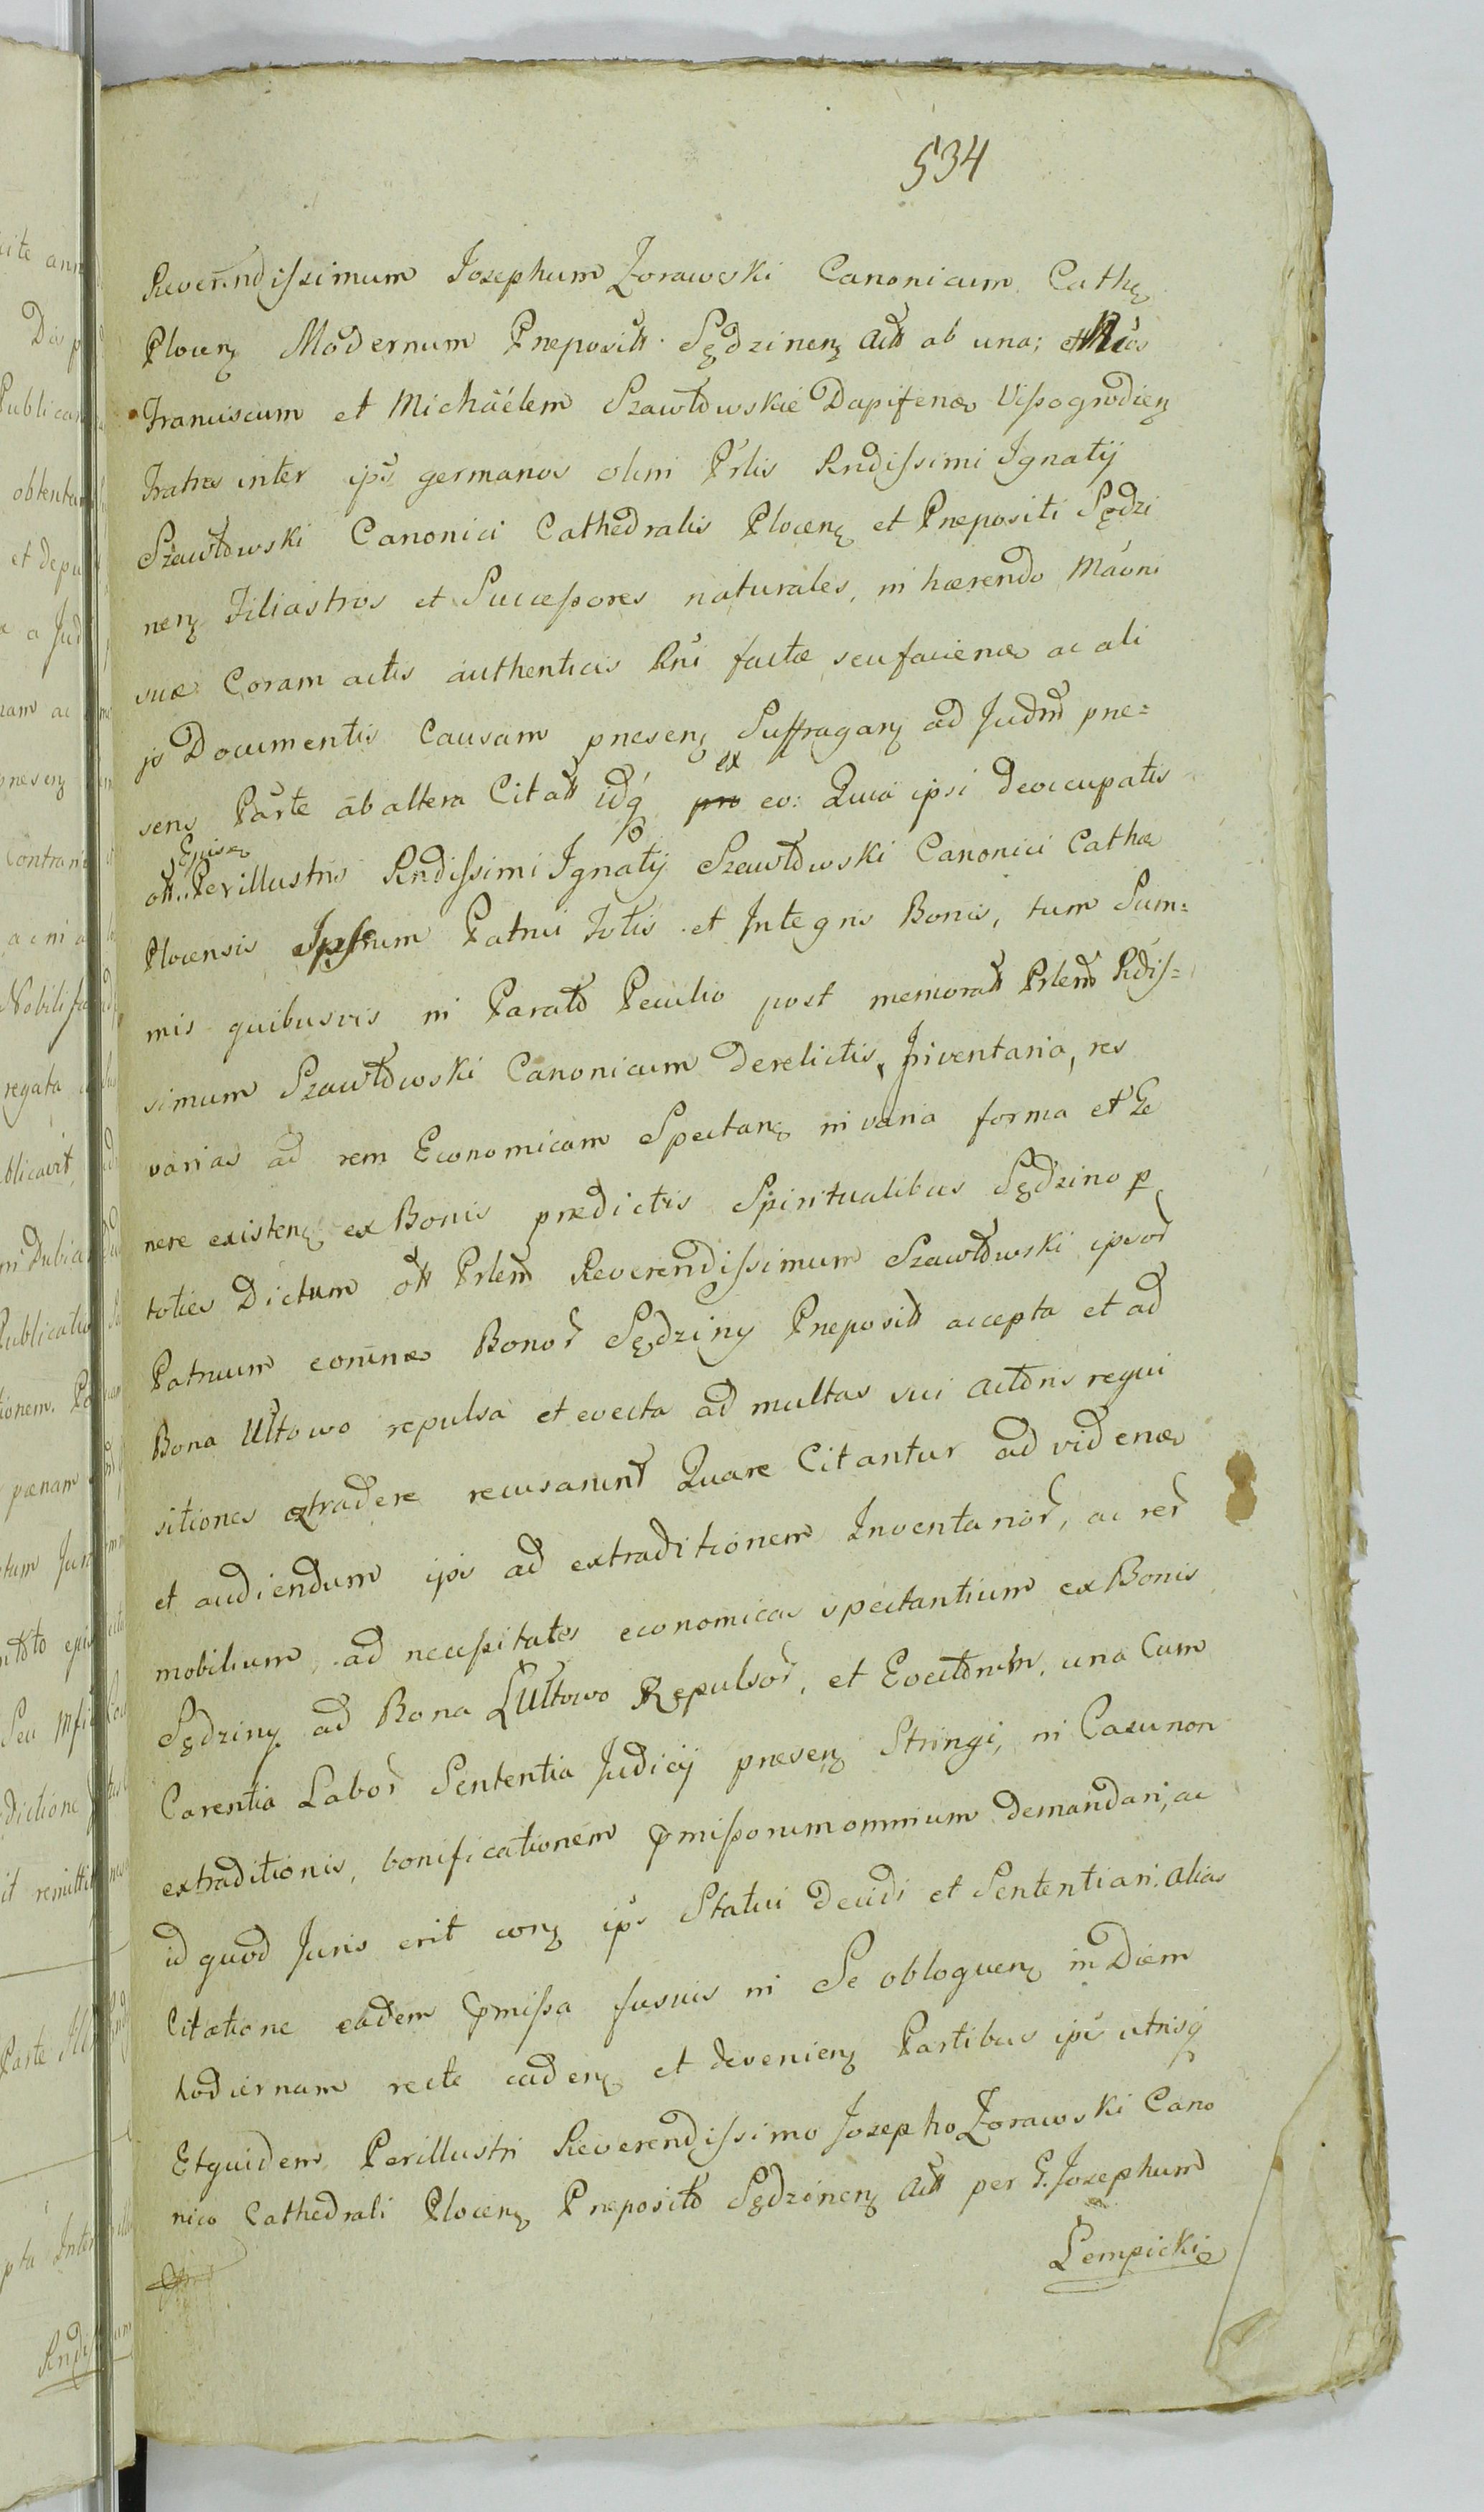 534
Reverendissimum Josephum Zorawski Canonicum Cathe
Plocen Modernum Preposit Sędzinen Act ab una; et
Franciscum et Michäelem Szawłowskie Dapiferos Vissogrodien
Fratres inter ips germanos olim Prlis Rndissimi Ignatij
Szawłowski Canonici Cathedralis Plocen et Prepositi Sędzi
nen Filiastros et Successores naturales, in hærendo
suæ Coram actis authenticis Rni factæ seu faciendæ ac ali
js Documentis Causam presen Suffragan ad Judm pre=
sens Parte ab altera Citatt idq ex eo: Quia ipsi Deoccupatis
ott. Perillustris Rndissimi Ignatij Szawłowski Canonici Cathæ
Plocensis Ipsorum Patrui Totis et Integris Bonis, tum Sum=
mis quibusvis in Parato Peculio post memoratt Prlem Rdis=
simum Szawłowski Canonicum Derelictis, Inventaria, res
varias ad rem Economicam Spectan in varia forma et Ge
nere existen ex Bonis prædictis Spiritualibus Sędzino p
toties Dictum ott Prlem Reverendissimum Szawłowski ipsor
Patruum eorund Bonor Sędziny Preposit accepta et ad
Bona Ułtowo repulsa et evecta ad multas sui Actoris requi
sitiones extradere recusarunt Quare Citantur ad videndum
et audiendum ips ad extraditionem Inventarior, ac rer
mobilium, ad necessitates economicas spectantium ex Bonis
Sędziny ad Bona Ułtowo Repulsor, et Evectorum, una Cum
Carentia Labor Sententia Judicij presen Stringi, in Casu non
extraditionis, bonificationem pmissorum omnium demandari, ac
id quod Juris erit con ips Statui Decidi et Sententiari. alias
Citatione eadem pmissa fusius in Se obloquen in Diem
hodiernam recte caden et devenien Partibus ips utrisq
Et quidem Perillustri Reverendissimo Josepho Zorawski Cano
nico Cathedrali Plocen Preposito Sędzinen Act per G. Josephum
Lempicki